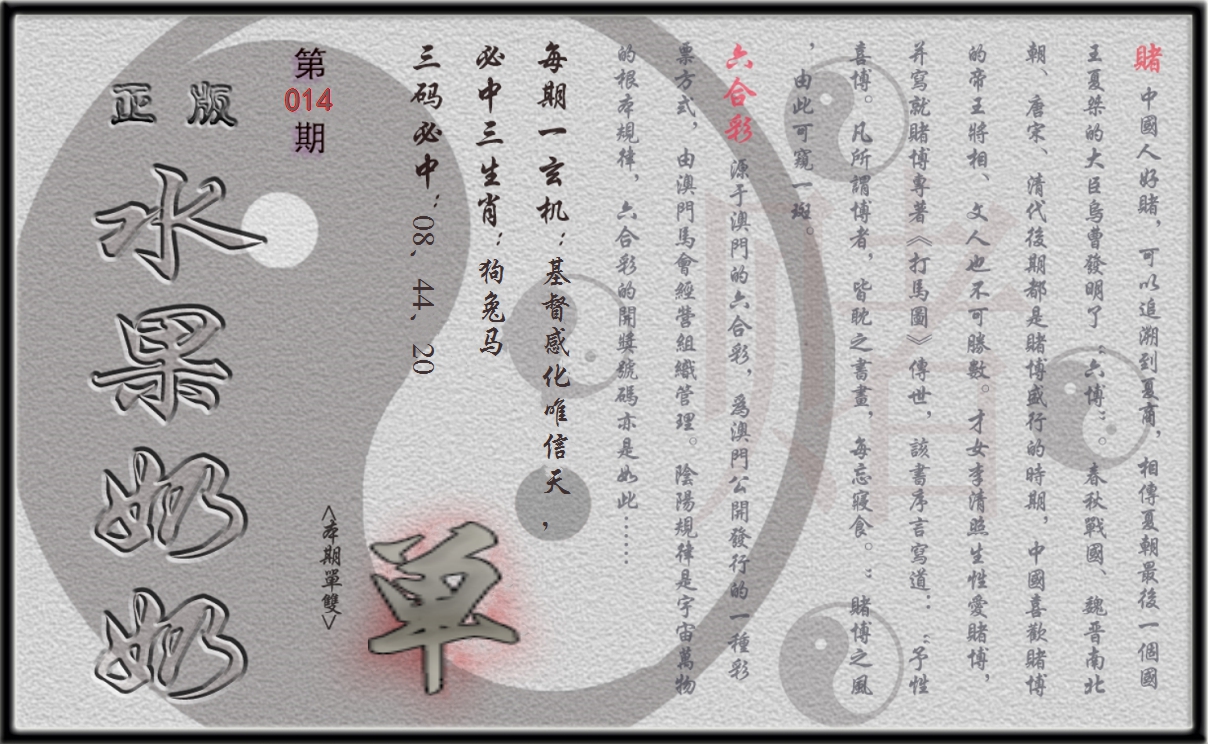 賭 中國人好賭，可以追溯到夏商，相傳夏朝最後一個國
王夏桀的大臣烏曹發明了“六博”。春秋戰國、魏晉南北
朝、唐宋、清代後期都是賭博盛行的時期，中國喜歡賭博
的帝王將相、文人也不可勝數。才女李清照生性愛賭博，
并寫就賭博專著《打馬圖》傳世，該書序言寫道：“予性
喜博。凡所謂博者，皆耽之書畫，每忘寢食。：賭博之風
，由此可窺一斑。
六合彩 源于澳門的六合彩，爲澳門公開發行的一種彩
票方式，由澳門馬會經營組織管理。陰陽規律是宇宙萬物
的根本規律，六合彩的開獎號碼亦是如此……
每期一玄机：基督感化唯信天，
必中三生肖：狗兔马
三码必中：08、44、20
第
014
期
<本期單雙>
單
正版
水果奶奶
赌